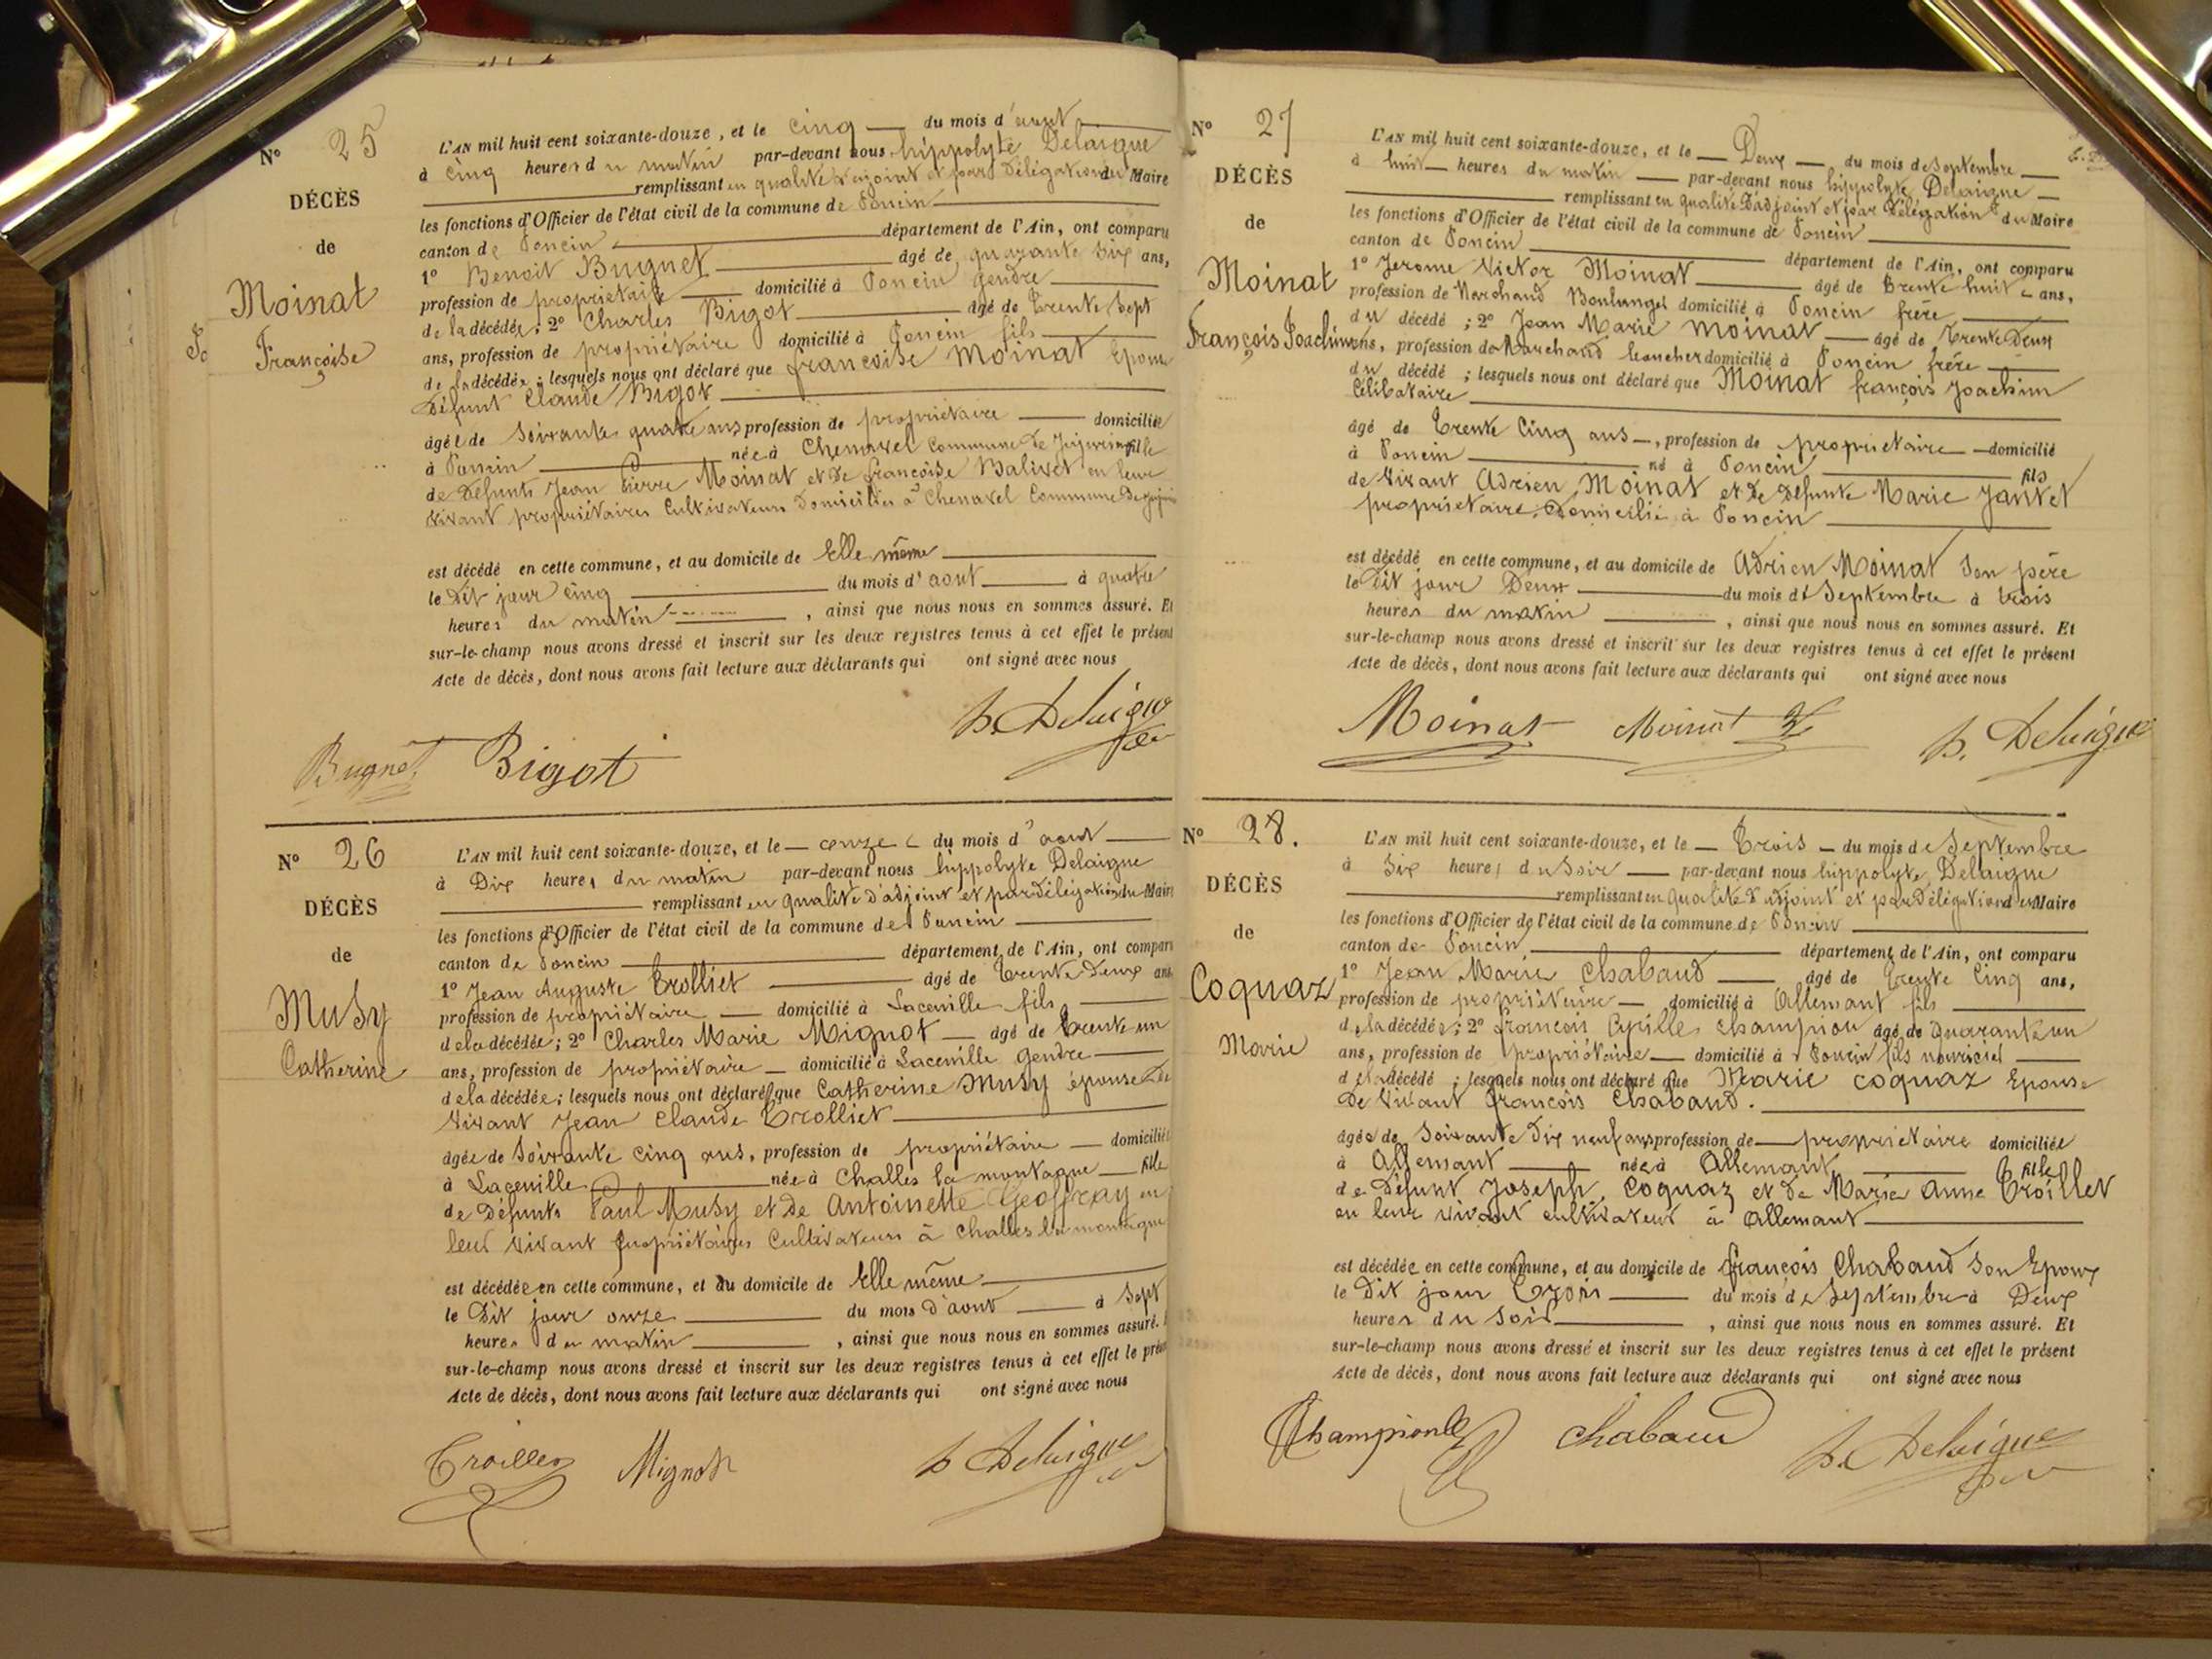 N° 25
DÉCÈS
de
Moinat
Françoise
L'AN mil huit cent soixante-douze, et le cinq du mois d'aout
à cinq heures du matin par-devant nous hippolyte Delaigue
remplissant en qualité d'ajoint et par Délégation du Maire
les fonctions d'Officier de l'état civil de la commune de Poncin
canton de Poncin département de l'Ain, ont comparu
1° Benoit Bugnet âgé de quarante six ans,
profession de propriétaire domicilié à Poncin gendre
de la décédée ; 2° Charles Bigot âgé de trente sept
ans, profession de propriétaire domicilié à Poncin fils
de la décédée ; lesquels nous ont déclaré que françoise Moinat Epouse
Défunt Claude Bigot
âgée de soixante quatre ans profession de propriétaire domiciliée
à Poncin née à Chenavel Commune de Jujurieux fille
de Défunts Jean Pierre Moinat et de françoise Balivet en leur
vivant propriétaires Cultivateurs Domiciliés à Chenavel Commune De
est décédé en cette commune, et au domicile de Elle même
le Dit jour cinq du mois d'aout à quatre
heures du matin , ainsi que nous nous en sommes assuré. Et
sur-le-champ nous avons dressé et inscrit sur les deux registres tenus à cet effet le présent
Acte de décès, dont nous avons fait lecture aux déclarants qui ont signé avec nous
Bugnet Bigot h. Delaigue
N° 26
DÉCÈS
de
Musy
Catherine
L'AN mil huit cent soixante-douze, et le onze du mois d'aout
à Dix heures du matin par-devant nous hippolyte Delaigue
remplissant en qualité d'adjoint et par délégation du Maire
les fonctions d'Officier de l'état civil de la commune de Poncin
canton de Poncin département de l'Ain, ont comparu
1° Jean Auguste Trolliet âgé de trente Deux ans
profession de propriétaire domicilié à Laceuille fils
de la décédée ; 2° Charles Marie Mignot âgé de trente un
ans, profession de propriétaire domicilié à Laceuille Gendre
de la décédée ; lesquels nous ont déclaré que Catherine Musy épouse de
Vivant Jean Claude Trolliet
âgée de Soixante cinq ans, profession de propriétaire domiciliée
à Laceuille née à Challes la montagne fille
de Défunts Paul Musy et de Antoinette Geoffray en
leur vivant propriétaires Cultivateurs à Challes la montagne
est décédée en cette commune, et au domicile de Elle même
le Dit jour onze du mois d'aout à Sept
heures du matin , ainsi que nous nous en sommes assuré.
sur-le-champ nous avons dressé et inscrit sur les deux registres tenus à cet effet le présent
Acte de décès, dont nous avons fait lecture aux déclarants qui ont signé avec nous
Mignot h Delaigue
N° 27
DÉCÈS
de
Moinat
François Joachim
L'AN mil huit cent soixante-douze, et le Deux du mois de Septembre
à huit heures du matin par-devant nous hippolyte Delaigue
remplissant en qualité d'adjoint et par Délégation du Maire
les fonctions d'Officier de l'état civil de la commune de Poncin
canton de Poncin département de l'Ain, ont comparu
1° Jerome Victor Moinat âgé de trente huit ans,
profession de Marchand Boulanger domicilié à Poncin frère
du décédé ; 2° Jean Marie Moinat âgé de trente Deux
ans, profession de Marchand boucher domicilié à Poncin frère
du décédé ; lesquels nous ont déclaré que Moinat françois Joachim
Célibataire
âgé de trente cinq ans, profession de propriétaire domicilié
à Poncin né à Poncin fils
de Vivant Adrien Moinat et de Défunte Marie Jantet
propriétaire Domicilié à Poncin
est décédé en cette commune, et au domicile de Adrien Moinat Son père
le Dit jour Deux du mois de Septembre à trois
heures du matin , ainsi que nous nous en sommes assuré. Et
sur-le-champ nous avons dressé et inscrit sur les deux registres tenus à cet effet le présent
Acte de décès, dont nous avons fait lecture aux déclarants qui ont signé avec nous
Moinat Moinat h. Delaigue
N° 28.
DÉCÈS
de
Coquaz
Marie
L'AN mil huit cent soixante-douze, et le Trois du mois de Septembre
à Six heures du Soir par-devant nous hippolyte Delaigue
remplissant en qualité d'adjoint et par Délégation du Maire
les fonctions d'Officier de l'état civil de la commune de Poncin
canton de Poncin département de l'Ain, ont comparu
1° Jean Marie Chabaud âgé de trente Cinq ans,
profession de propriétaire domicilié à Allemant fils
de la décédée ; 2° françois Cyrille Championâgé de quarante un
ans, profession de propriétaire domicilié à Poncin fils nouricier
de la décédé ; lesquels nous ont déclaré que Marie Coquaz Epouse
De Vivant françois Chabaud.
âgée de Soixante Dix neuf ans profession de propriétaire domiciliée
à Allemant née à Allemant fille
de Défunt Joseph Coquaz et de Marie Anne Troillet
en leur vivant cultivateur à Allemant
est décédée en cette commune, et au domicile de françois Chabaud Son Epoux
le Dit jour Trois du mois de Septembre à Deux
heures du Soir , ainsi que nous nous en sommes assuré. Et
sur-le-champ nous avons dressé et inscrit sur les deux registres tenus à cet effet le présent
Acte de décès, dont nous avons fait lecture aux déclarants qui ont signé avec nous
Chabaud h. Delaigue